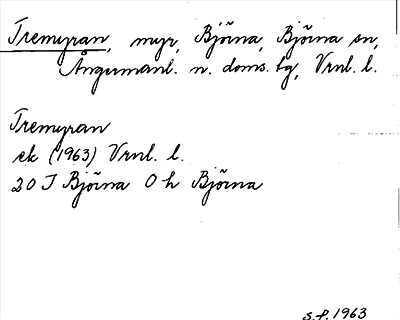 Tremyran, myr, Björna, Björna sn,
Ångermanl. n. doms. tg, Vrnl. l.
Tremyran
ek (1963) Vrnl. l.
20 J Björna O h Björna
s.f. 1963